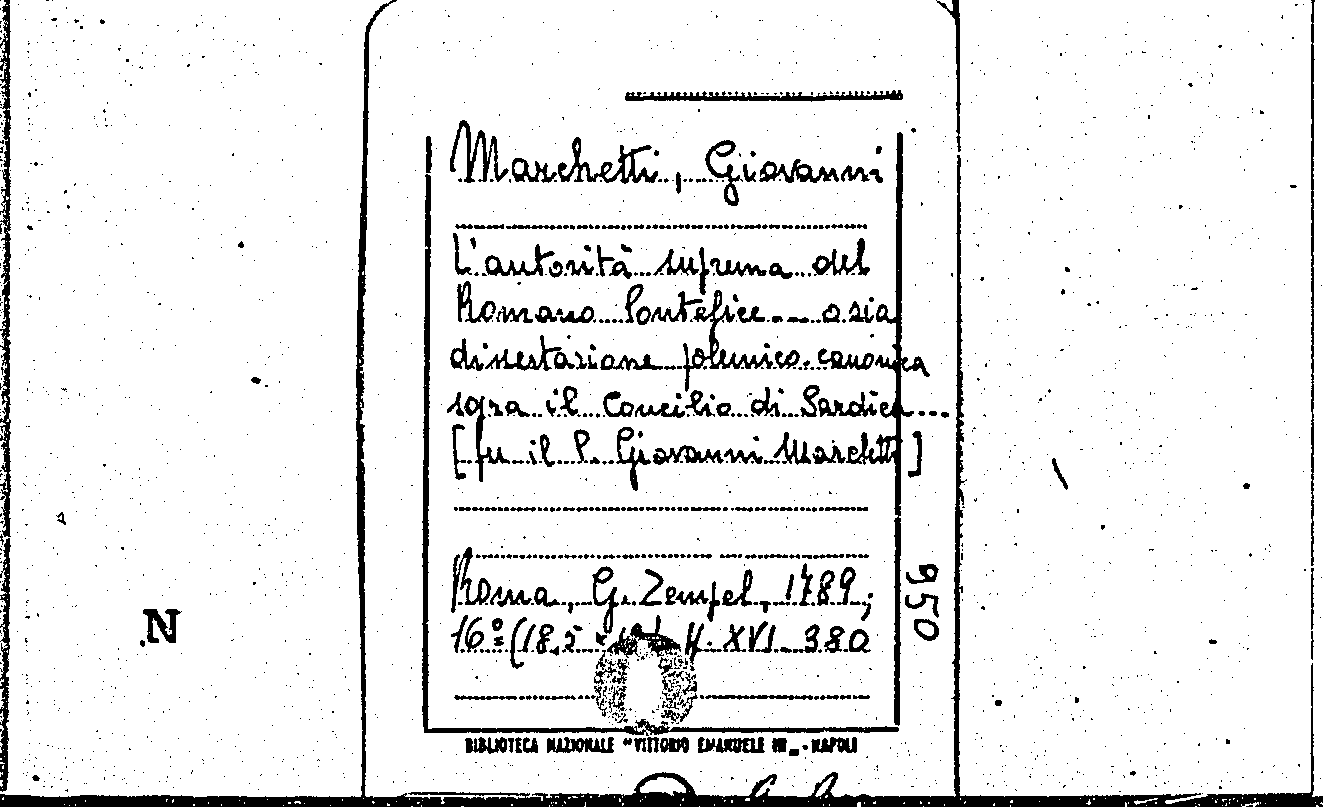 Marchetti, Giovanni
L'autorità suprema del
Romano Pontefice... ozia
dissertazione polemico-canonica
sopra il Concilio di Sardica...
[fu il P. Giovanni Marchetti]
Roma, G. Zempel, 1789;
16º (18,5 x H. XVI-380
950
N
BIBLIOTECA NAZIONALE "VITTORIO EMANUELE III" - NAPOLI